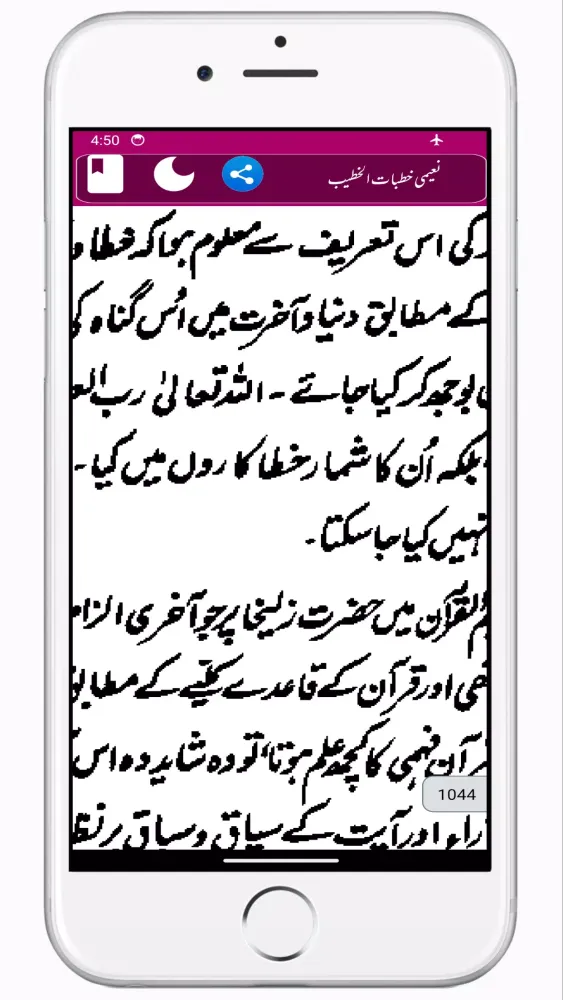 4:50
نعیمی خطبات الخطیب
کی اس تعریف سے معلوم ہوا کہ خطا و
کے مطابق دنیا و آخرت میں اُس گناہ کی
بوجھ کر کیا جائے ۔ اللہ تعالیٰ رب
بلکہ اُن کا شمار خطا کاروں میں کیا ۔
نہیں کیا جا سکتا ۔
القرآن میں حضرت زلیخا پر جو آخری
اور قرآن کے قاعدے کلیے کے مطابق
فہمی کا کچھ علم ہوتا تو وہ شاید وہ اس
1044
اور آیت کے سیاق و سباق پر